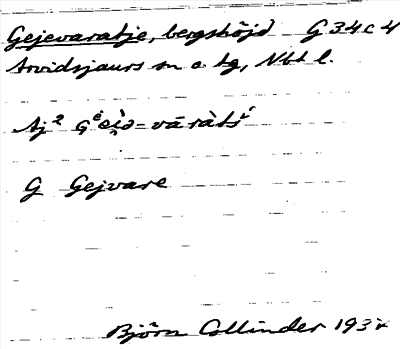 Gejevaratje, bergshöjd G 34 c 4
Arvidsjaurs sn o. tg, Nbt l.
Aj²
G Gejvare
Björn Collinder 193